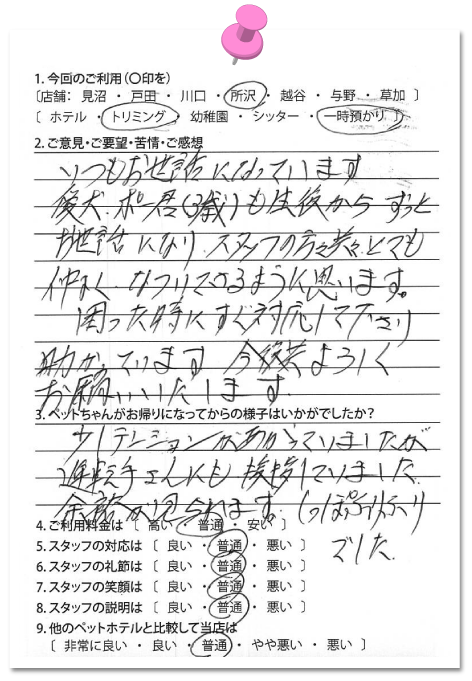 1. 今回のご利用（〇印を）
〔店舗： 見沼 ・ 戸田 ・ 川口 ・ 所沢 ・ 越谷 ・ 与野 ・ 草加 〕
〔 ホテル ・ トリミング ・ 幼稚園 ・ シッター ・ 一時預かり 〕
2. ご意見・ご要望・苦情・ご感想
いつもお世話になっています
愛犬、ポー君(3歳)も生後から ずっと
お世話になり、スタッフの方々共々、とても
仲よく、なついてるように思います。
困った時にすぐ対応して下さり
助かっています 今後共よろしく
お願いいたします.
3. ペットちゃんがお帰りになってからの様子はいかがでしたか？
少しテンションがあがっていましたが
運転手さんにも挨拶していました.
余裕が見られます. しっぽふりふり
でした.
4. ご利用料金は 〔 高い ・ 普通 ・ 安い 〕
5. スタッフの対応は 〔 良い ・ 普通 ・ 悪い 〕
6. スタッフの礼節は 〔 良い ・ 普通 ・ 悪い 〕
7. スタッフの笑顔は 〔 良い ・ 普通 ・ 悪い 〕
8. スタッフの説明は 〔 良い ・ 普通 ・ 悪い 〕
9. 他のペットホテルと比較して当店は
〔 非常に良い ・ 良い ・ 普通 ・ やや悪い ・ 悪い 〕